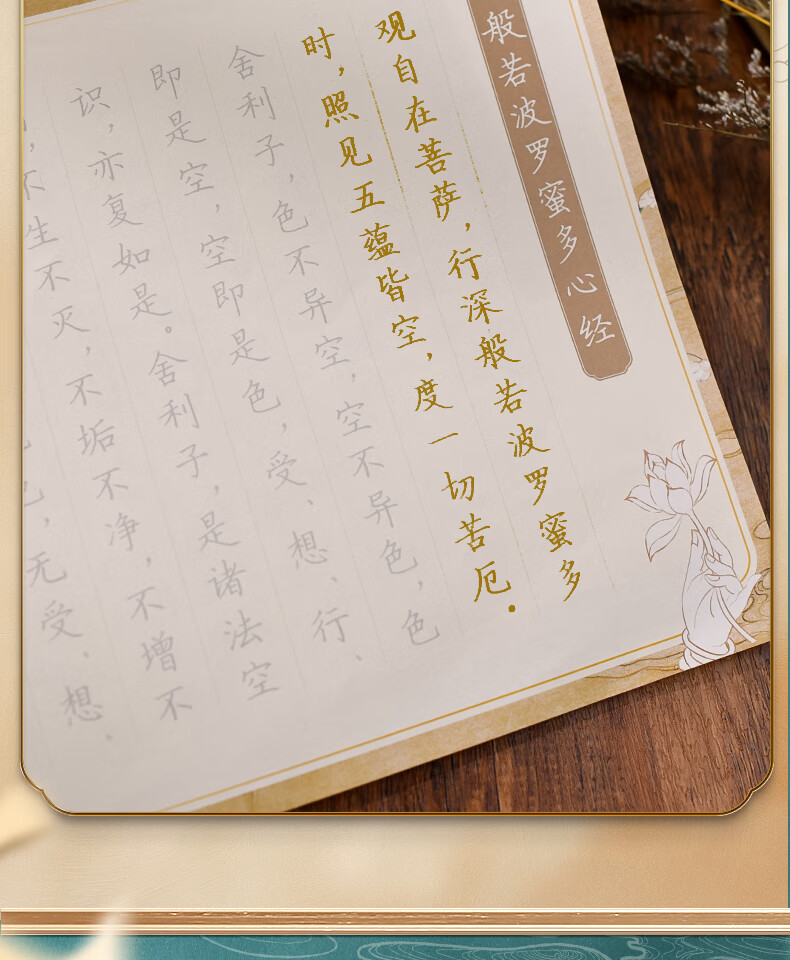 般若波罗蜜多心经
观自在菩萨，行深般若波罗蜜多
时，照见五蕴皆空，度一切苦厄。
舍利子，色不异空，空不异色，色
即是空，空即是色，受、想、行、
识，亦复如是。舍利子，是诸法空
，不生不灭，不垢不净，不增不
，无受、想、